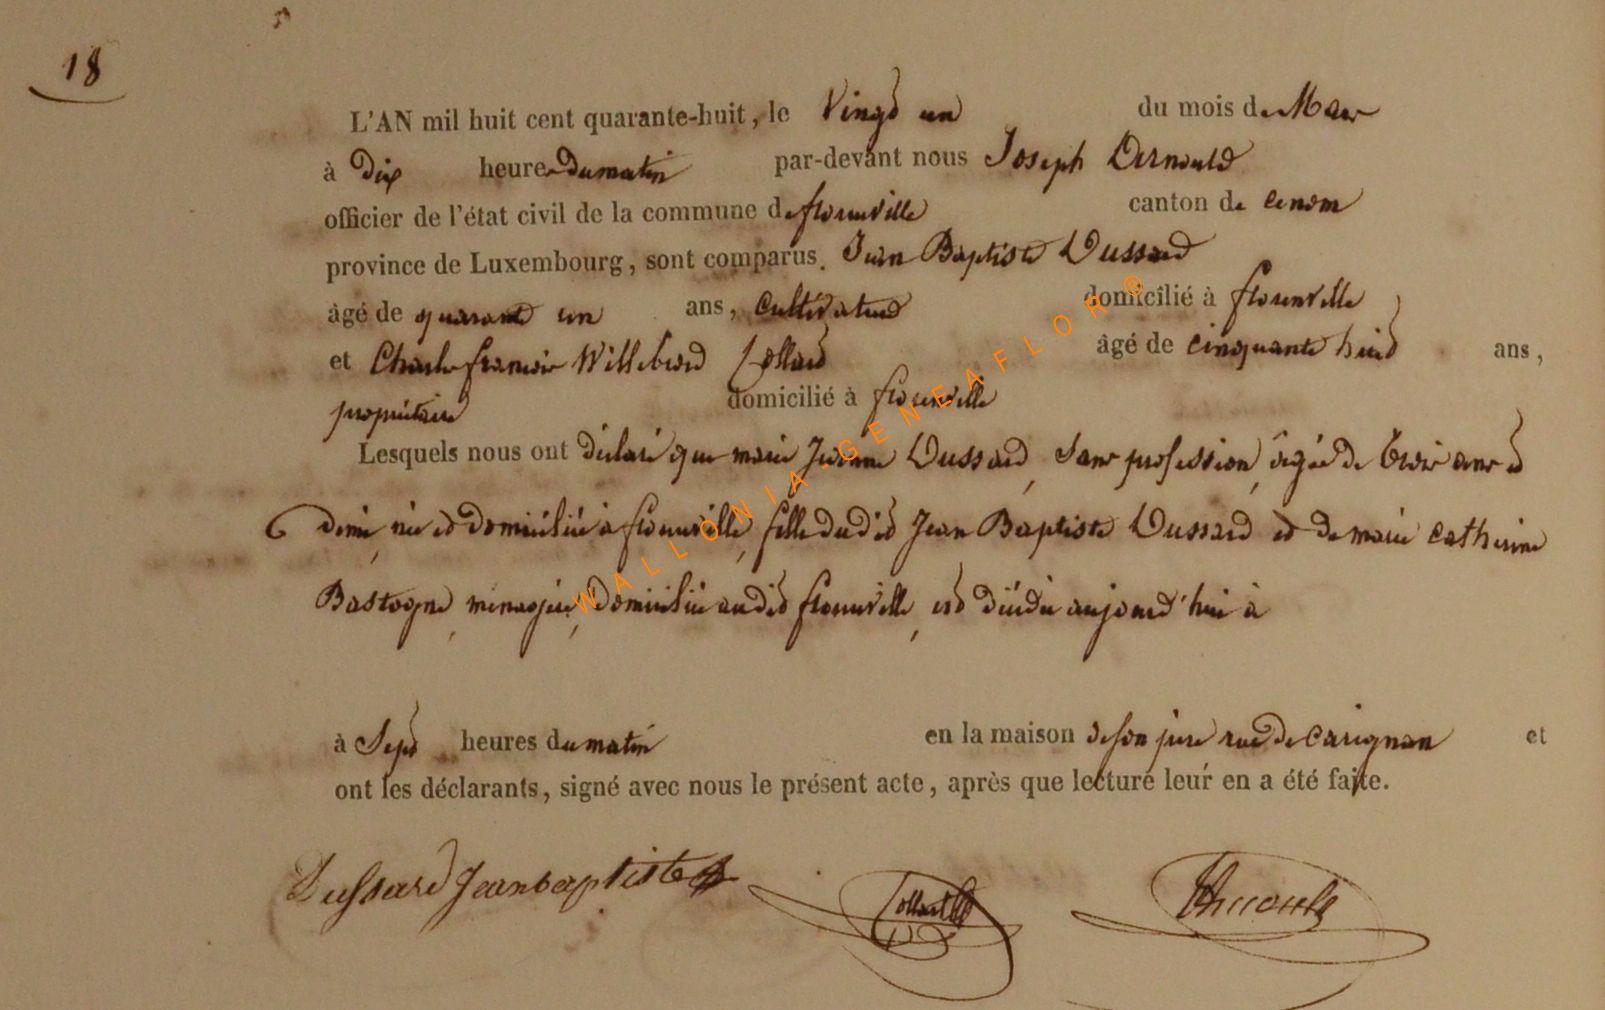 18
L'AN mil huit cent quarante-huit, le Vingt un du mois de Mars
à Dix heures du matin par-devant nous Joseph Arnould
officier de l'état civil de la commune de florenville canton de
province de Luxembourg, sont comparus. Jean Baptiste Dussard
âgé de quarante un ans, Cultivateur domicilié à florenville
et Charles francois Willebrord Collard âgé de cinquante huit ans,
propriétaire domicilié à florenville
Lesquels nous ont déclaré que marie Jeanne Dussard, Sans profession, âgée de trois ans et
demi, née et domiciliée à florenville, fille dudit Jean Baptiste Dussard et de marie catherine
Bastogne, menagère, Domiciliée audit florenville, est décédée aujourd'hui à
à Sept heures du matin en la maison de son père rue de Carignan et
ont les déclarants, signé avec nous le présent acte, après que lecture leur en a été faite.
Dussard Jean baptiste Collard Arnould
WALLONIA GENEAFLOR ©